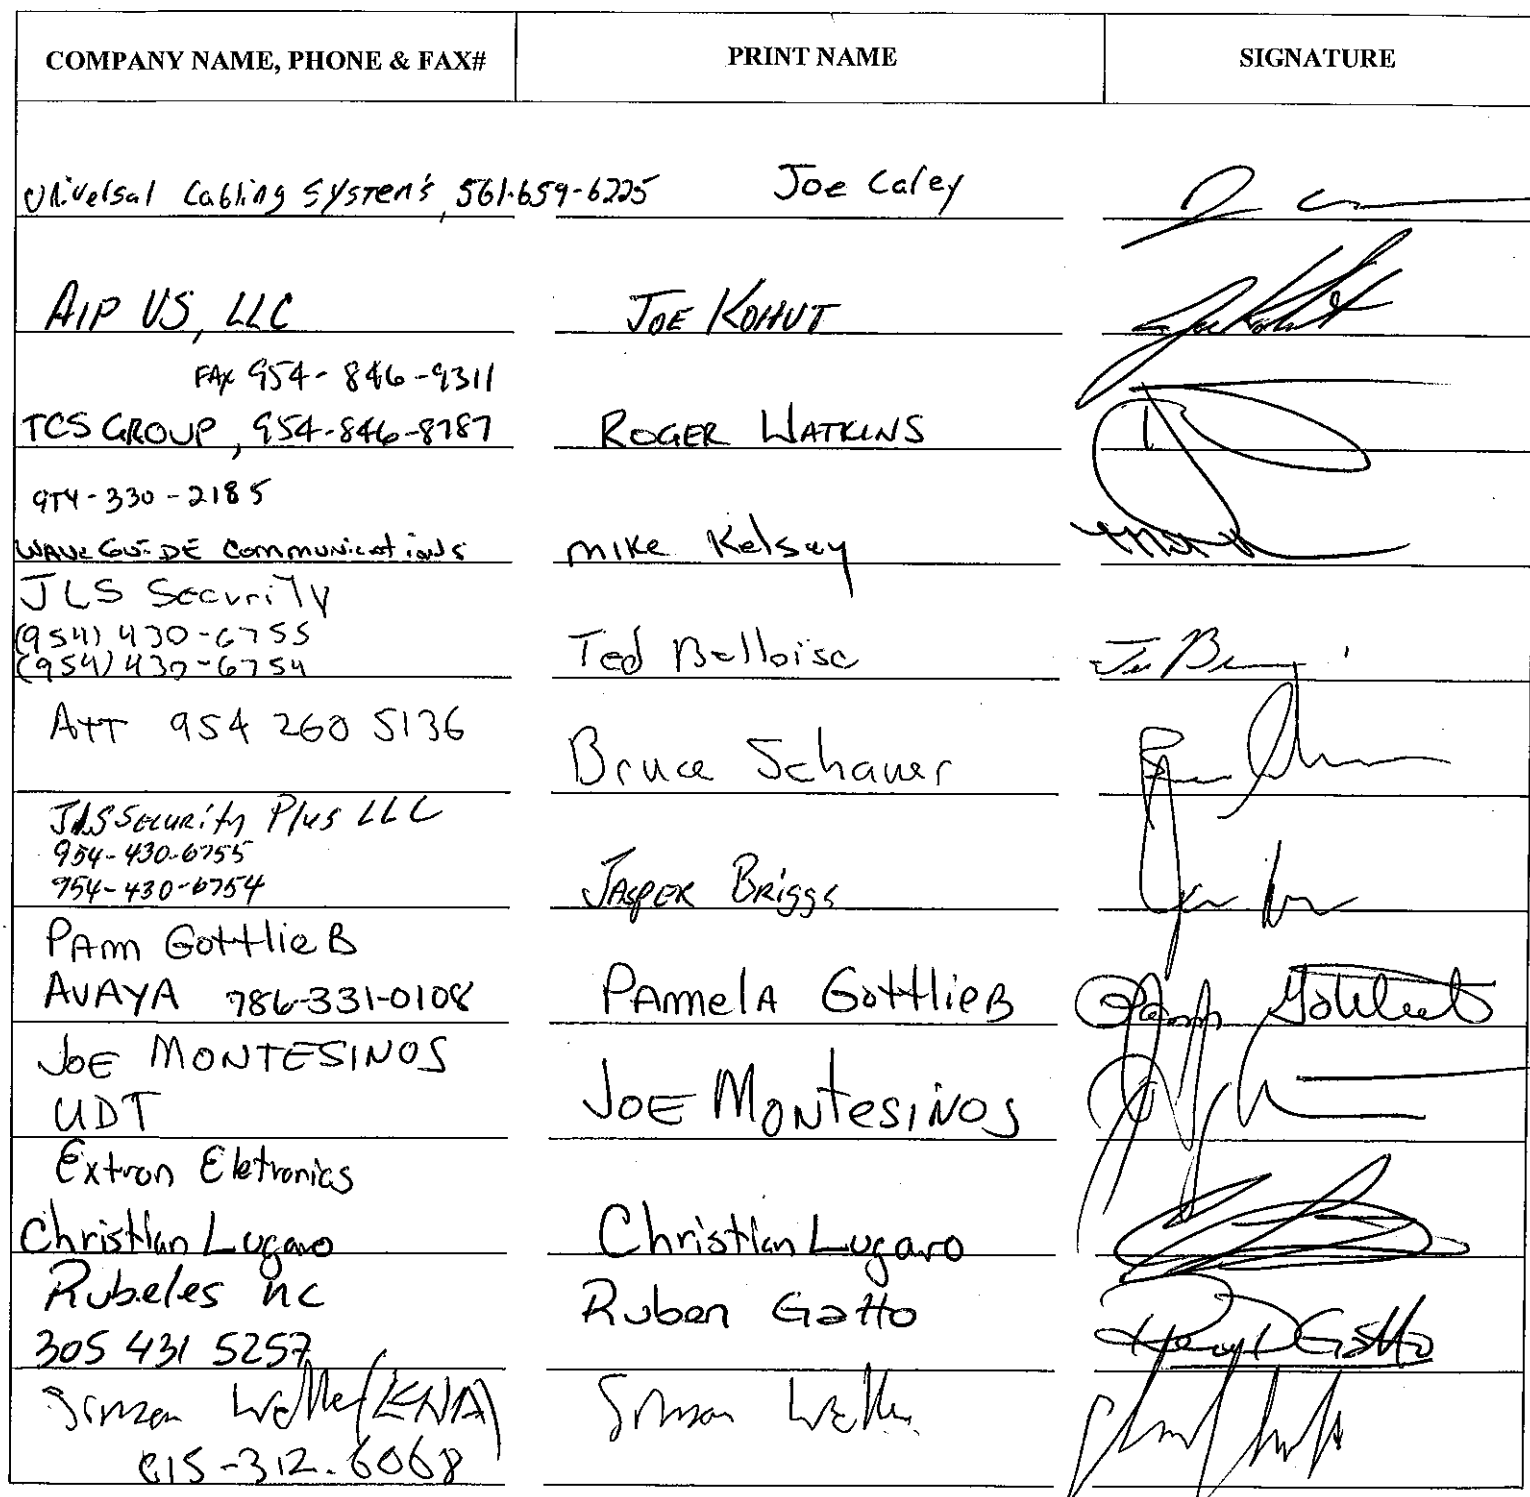 COMPANY NAME, PHONE & FAX# PRINT NAME SIGNATURE
Universal Cabling System's, 561-659-6225 Joe Caley
AIP US, LLC JOE KOHUT
FAX 954-846-9311
TCS GROUP, 954-846-8787 ROGER WATKINS
974-330-2185
WAVEGUIDE Communications mike Kelsey
JLS Security
(954) 430-6755
(954) 430-6754 Ted Belloise
ATT 954 260 5136 Bruce Schauer
JLS Security Plus LLC
954-430-6755
954-430-6754 JASPER BRIGGS
PAm GottlieB
AVAYA 786-331-0108 PAmelA GottlieB
JOE MONTESINOS
UDT JOE MONtesiNos
Extron Eletronics
Christian Lugaro Christian Lugaro
Rubeles nc Ruben Gatto
305 431 5257 Gatto
(ENA)
615-312-6068